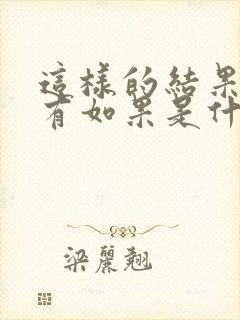 這樣的結果
有如果是什
梁麗翹